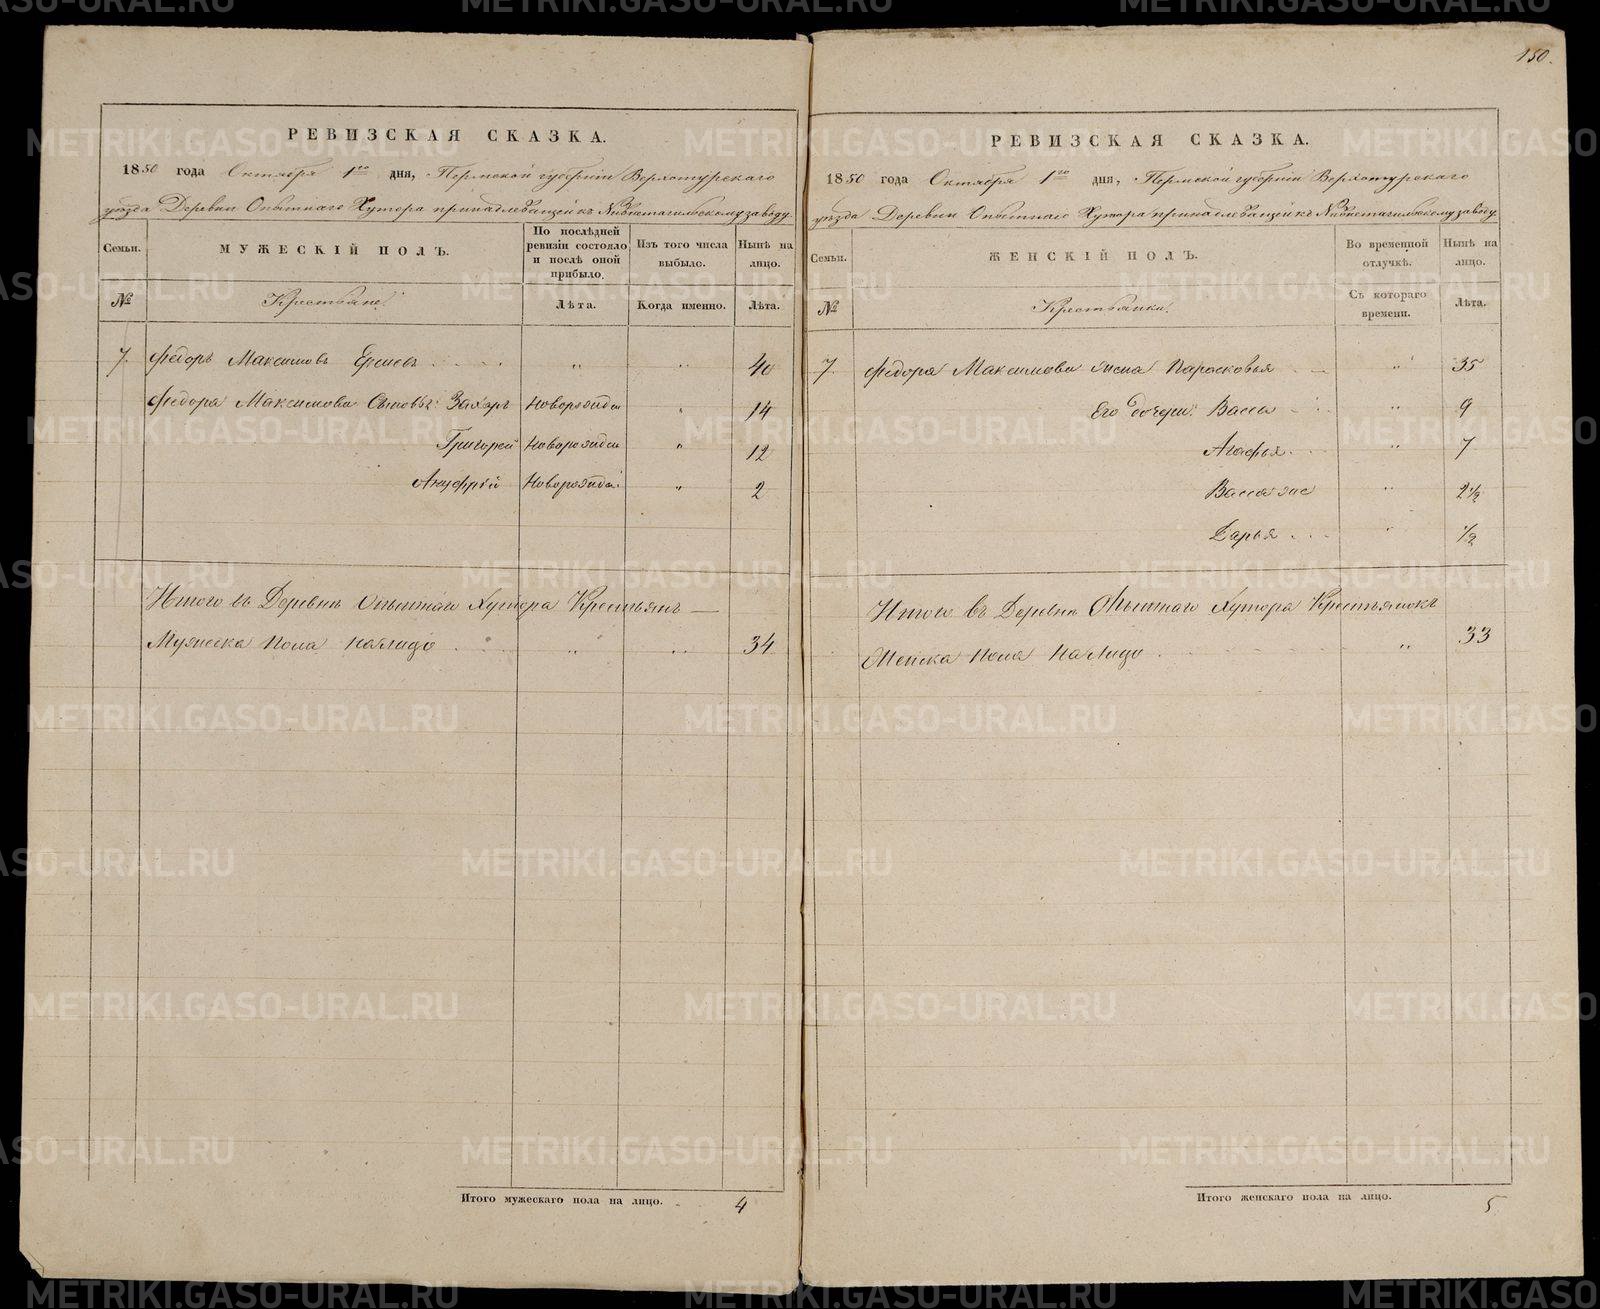 150.
РЕВИЗСКАЯ СКАЗКА.
1850 года Октября 1го дня, Пермской губерніи Верхотурскаго
уѣзда Деревни Опытнаго Хутора принадлежащей къ Нижнетагильскому заводу.
Семьи.
МУЖЕСКІЙ ПОЛЪ.
По послѣдней ревизіи состояло и послѣ оной прибыло.
Изъ того числа выбыло.
Нынѣ на лицо.
№
Крестьяне.
Лѣта.
Когда именно.
Лѣта.
7. Федоръ Максимовъ " " 40
Федора Максимова Сыновья: Захаръ Новорожден " 14
Григорей Новорожден " 12
Ануфрій Новорожден " 2
Итого въ Деревнѣ Опытнаго Хутора Крестьянъ —
Мужеска Пола На Лицо " " 34
Итого мужескаго пола на лицо. 4
РЕВИЗСКАЯ СКАЗКА.
1850 года Октября 1го дня, Пермской губерніи Верхотурскаго
уѣзда Деревни Опытнаго Хутора принадлежащей къ Нижнетагильскому заводу.
Семьи.
ЖЕНСКІЙ ПОЛЪ.
Во временной отлучкѣ.
Нынѣ на лицо.
№
Крестьянки.
Съ котораго времени.
Лѣта.
7. Федора Максимова жена Парасковья " 35
Его дочери: Васса " 9
Агафья " 7
Васса же " 2½
Дарья " ½
Итого въ Деревнѣ Опытнаго Хутора Крестьянокъ
Женска Пола На Лицо " 33
Итого женскаго пола на лицо. 5
METRIKI.GASO-URAL.RU